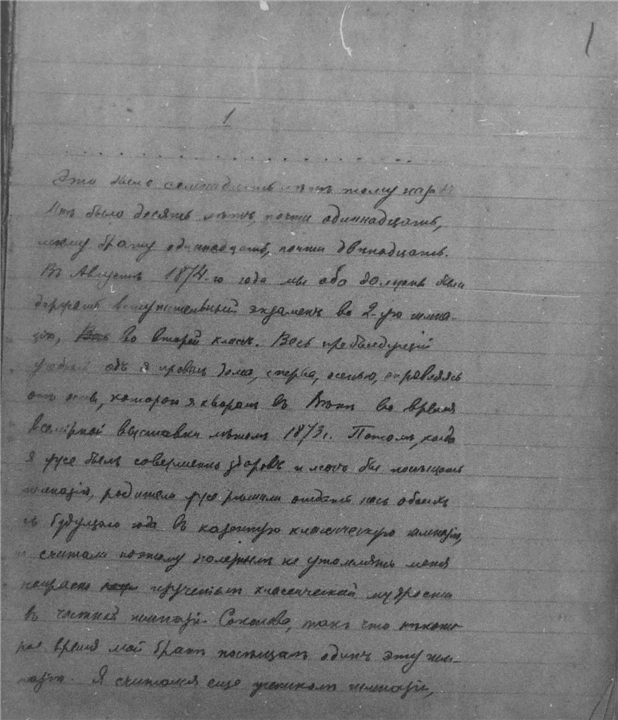 1
1
Это было семнадцать лѣтъ тому назадъ
Мнѣ было десять лѣтъ, почти одиннадцать,
моему брату одиннадцать, почти двѣнадцать.
Въ Августѣ 1874-го года мы оба должны были
держать вступительный экзаменъ во 2-ую гимна-
зію, во второй классъ. Весь предыдущій
учебный годъ я провелъ дома, сперва, осенью, оправляясь
отъ, которою я хворалъ въ Вѣнѣ во время
всемірной выставки лѣтомъ 1873 г. Потомъ, когда
я уже былъ совершенно здоровъ и могъ бы посѣщать
гимназію, родители уже рѣшили отдать насъ обоихъ
съ будущаго года въ казенную классическую гимназію,
и считали поэтому полезнымъ не утомлять меня
напрасно изученіемъ классической мудрости
въ частной гимназіи Соколова, такъ что нѣкото-
рое время мой братъ посѣщалъ одинъ эту гим-
назію. Я считался еще ученикомъ гимназіи,